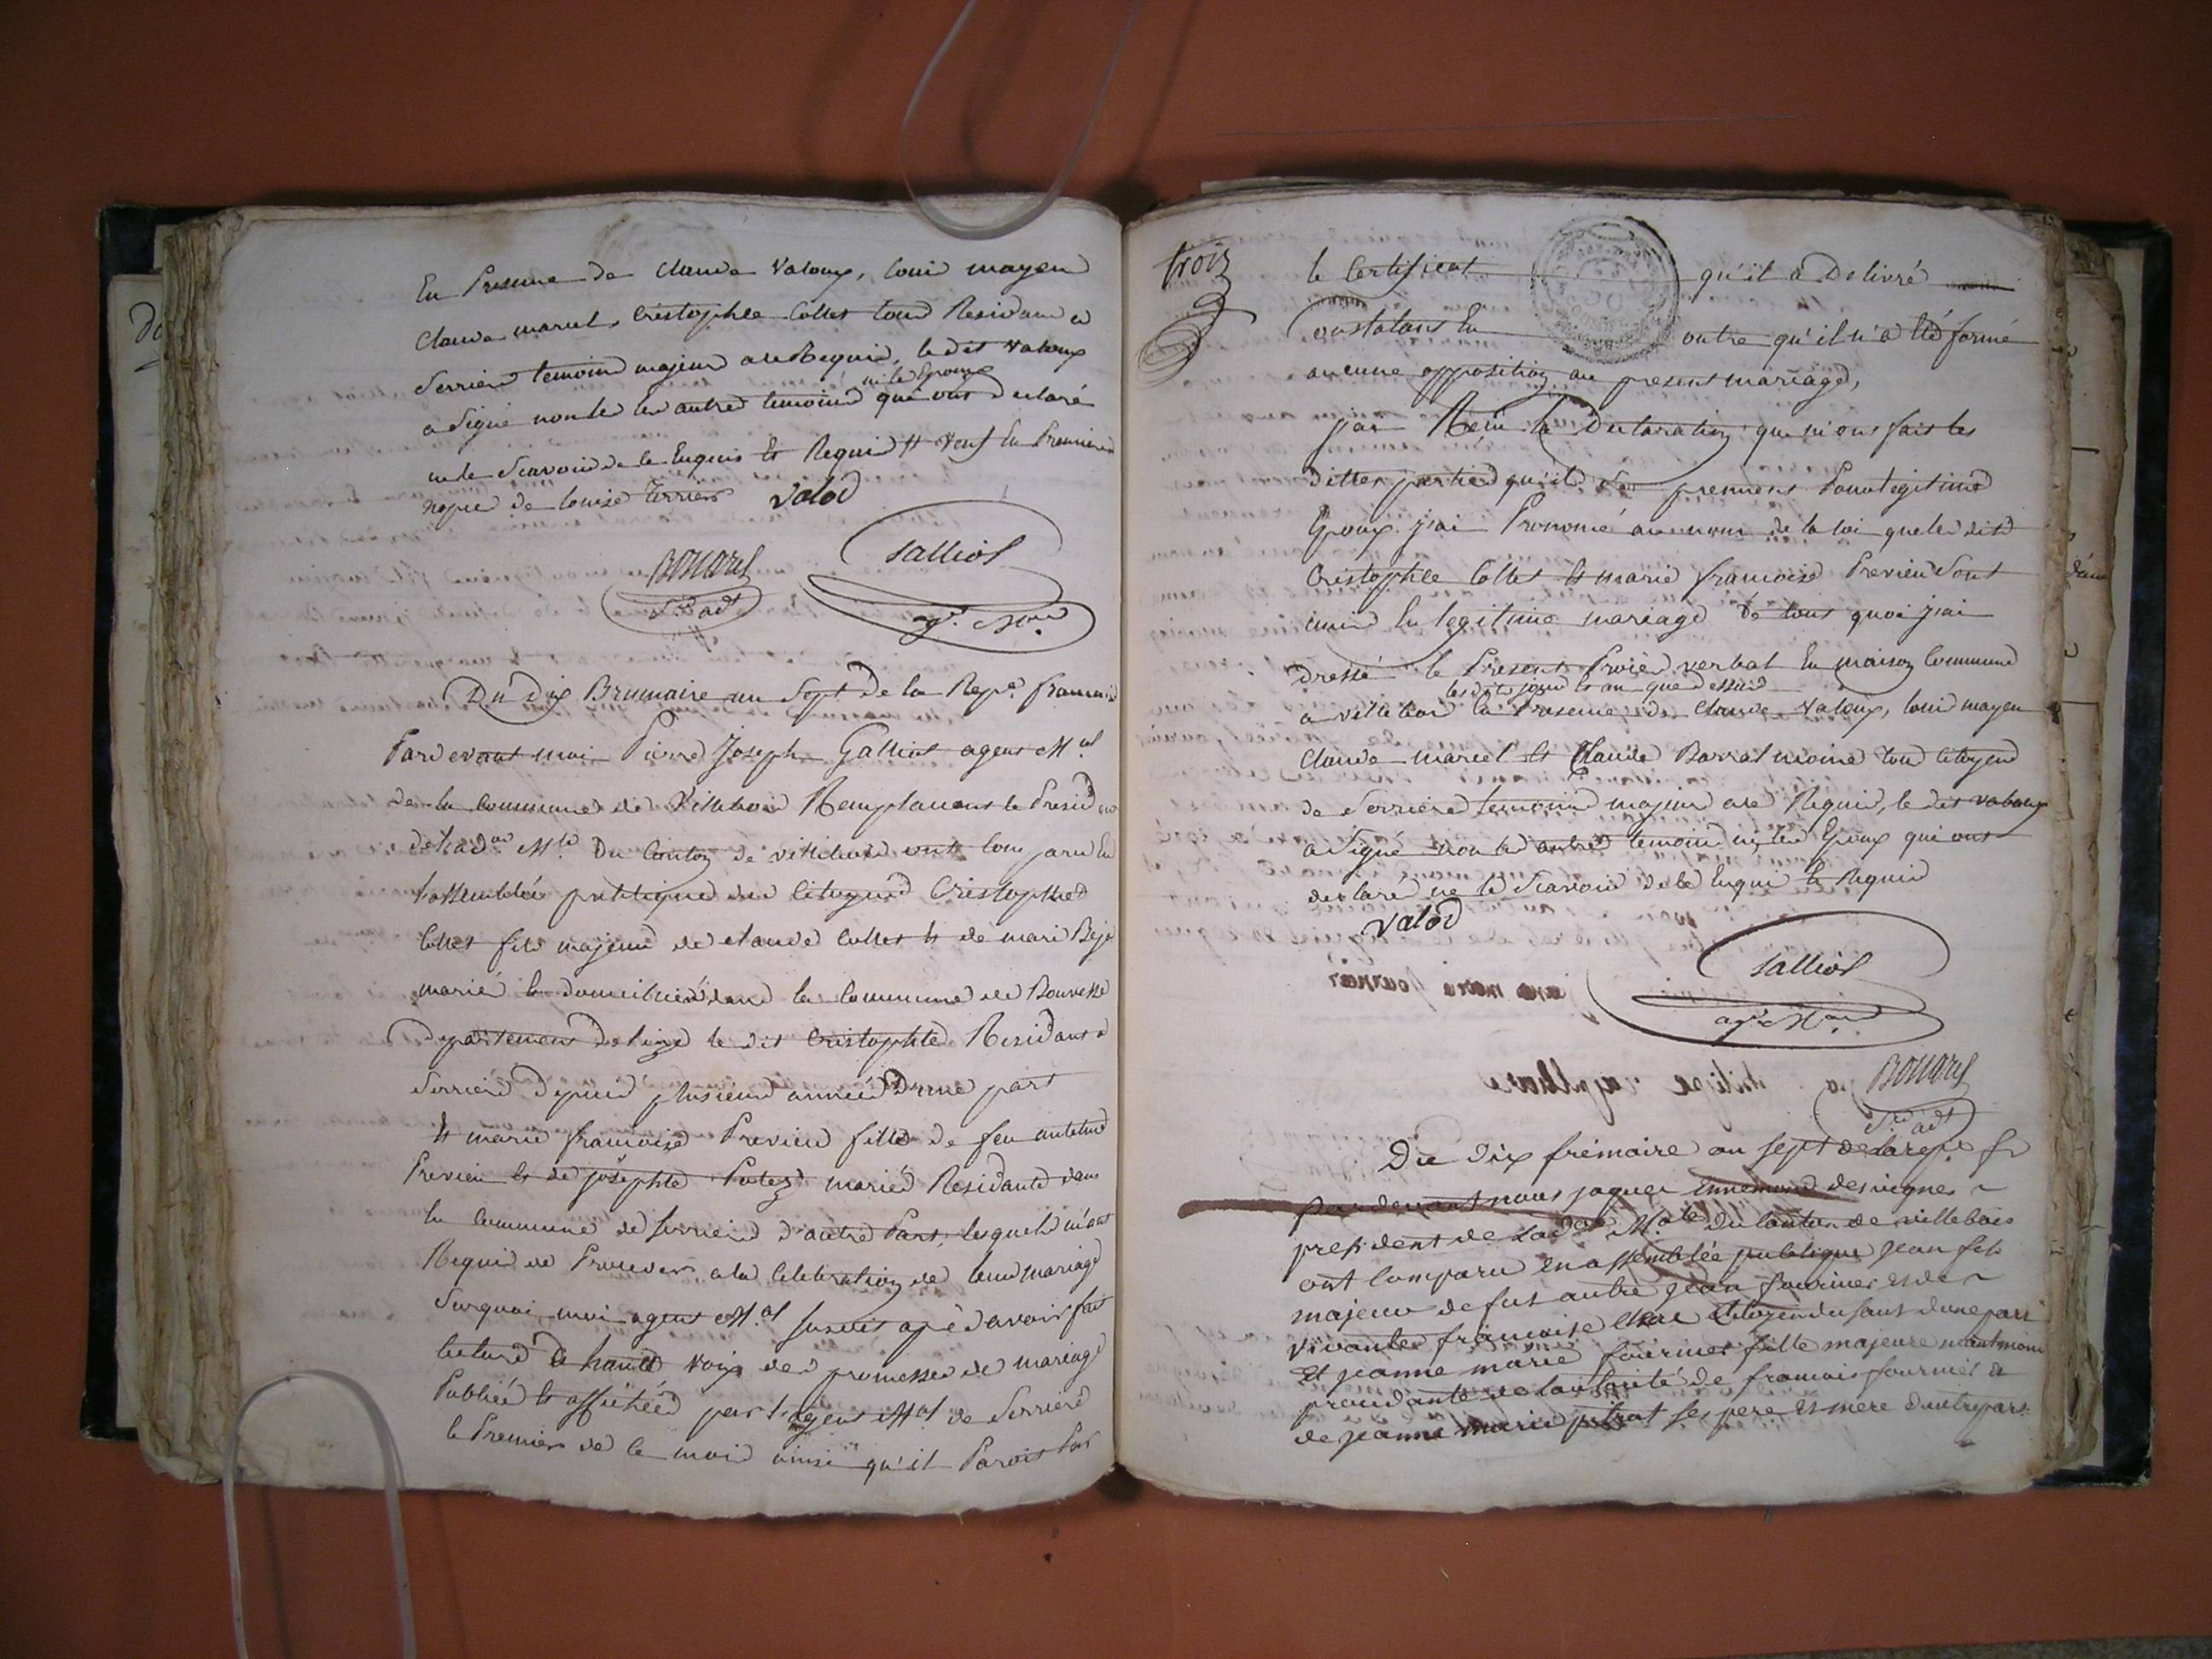 En Presence de Claude Valoux, loui mayen
Claude marcel, Cristophle Collet tous Residand a
Serriere temoins majeurs a ce Requis, le dit Valoux
ni le Epoux
a Signé non les les autres temoins qui ont declaré
ne le Scavoir de ce Enquis et Requis # veuf En Premiere
nopce de louise Terrier Valod
Bouard Galliot
S.re adt ag.t M.al
Du dix Brumaire an Sept de la Rep.e francaise
Pardevant moi Pierre Joseph Galliot agent M.al
de la Commune de Villeboid Remplacant le Presid
de l'ad.on M.le Du Canton de villeboid ont Comparu En
l'assemblée publique des Citoyens Cristophle
Collet fils majeur de Claude Collet et de mari Bej
mariés et domiciliés dans la Commune de Bouvesse
Departement de lizere le dit Cristophle Residant a
Serriere Depuis plusieurs années D'une part
et marie francoise Previeu fille de feu antelme
Previeu et de josephte Putez mariés Residante dans
la Commune de Serriere d'autre Part, lesquels m'ont
Requis de Proceder a la Celebration de leur mariage
Surquoi moi agent M.al Susdit apré d'avoir fait
lecture a haute voix des promesses de mariage
Publiée et affichées par l'agent M.al de Serriere
le Premier de ce mois ainsi qu'il Parois Par
trois
le Certificat qu'il a Delivré
Constatant En outre qu'il n'a été formé
aucune opposition au present mariage,
jai Reçu la Declaration que m'ont fait les
dittes parties qu'ils Se prennent Pour legitime
Epoux j'ai Prononcé au nom de la loi que les dits
Cristophle Collet et marie francoise Previeu Sont
unis En legitime mariage de tout quoi j'ai
dressé le Present Procès verbal En maison Commune
lesdits jour et an que dessus
a villeboi En Presence de Claude Valoux, loui mayen
Claude marcel et Claude Barral moine tous Citoyens
de Serriere temoins majeurs a ce Requis, le dit valoux
a Signé non les autres temoins ni les Epoux qui ont
declaré ne le Scavoir de ce Enqui et Requis
Valod
Galliot
ag.t M.al
Bouard
S.re adt
Du Dix frimaire an sept de la rep.e fr
pardevant nous jaques Ennemond desvignes
president de l'ad.on M.ale du Canton de villebois
ont Comparu en assemblée publique jean fils
majeur de fut autre jean fournier et de
vivante francoise d'une part
Et jeanne marie fournier fille majeure
procedante de l'autorité de francois fournier et
de jeanne marie ses pere et mere d'autre part